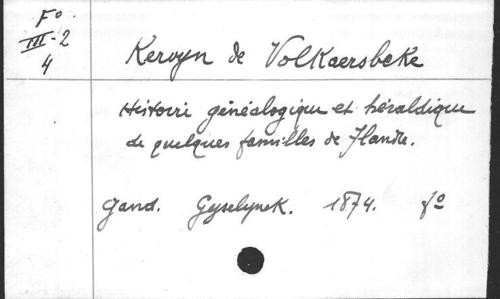 Fº
III-2
4
Kervyn de Volkaersbeke
Histoire généalogique et héraldique
de quelques familles de Flandre.
Gand. Gyselynck. 1874. fº